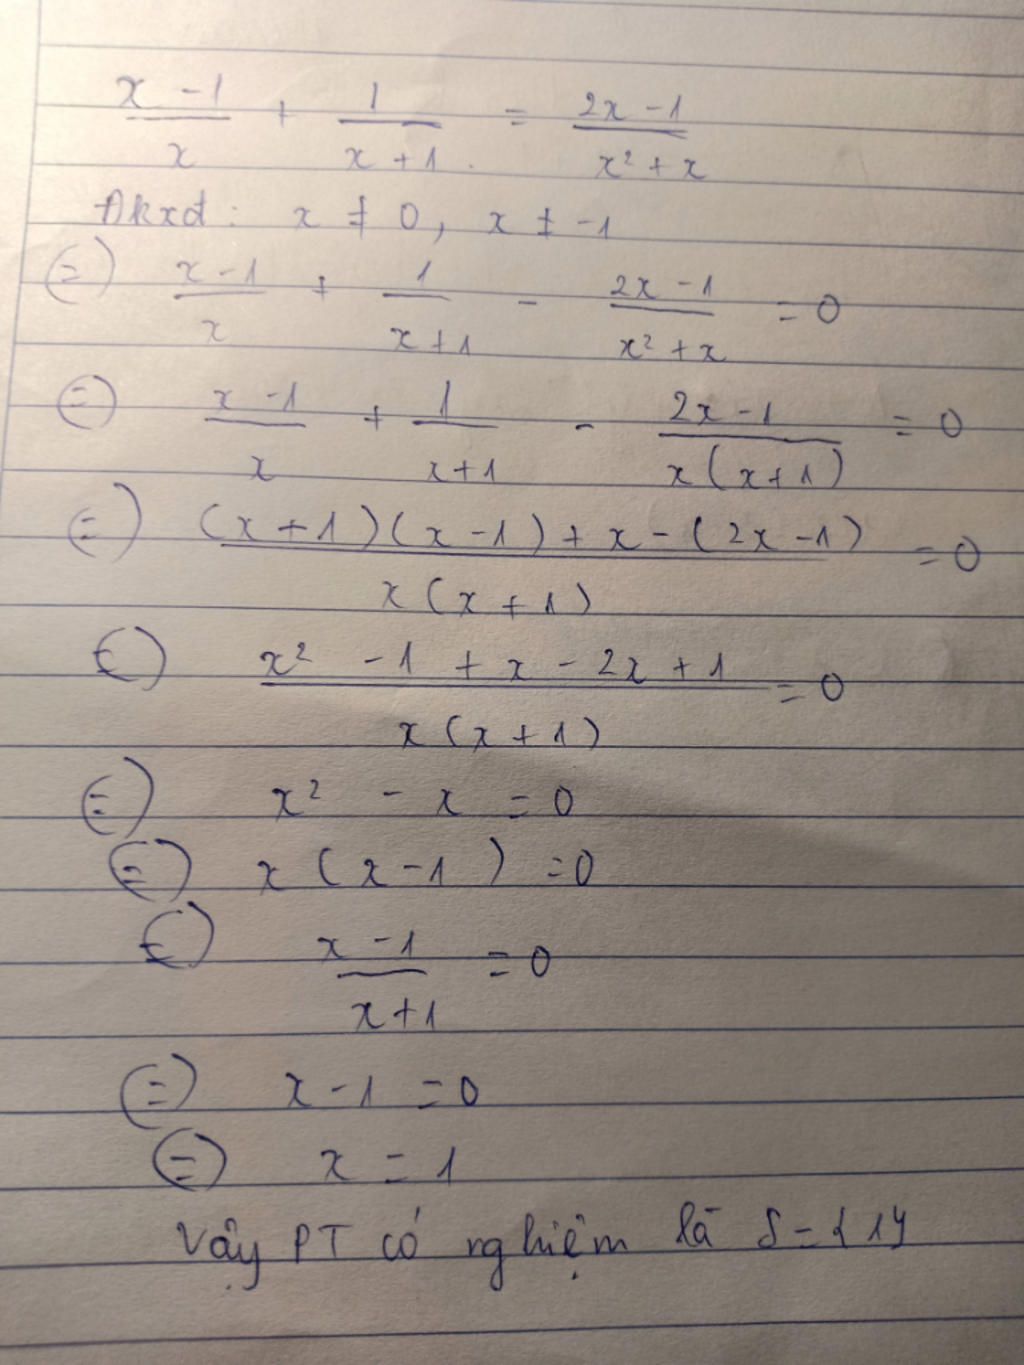 x - 1 / x + 1 / x + 1 = 2x - 1 / x² + x
Đkxđ: x ≠ 0, x ≠ -1
(=) x - 1 / x + 1 / x + 1 - 2x - 1 / x² + x = 0
(=) x - 1 / x + 1 / x + 1 - 2x - 1 / x(x + 1) = 0
(=) (x + 1)(x - 1) + x - (2x - 1) / x(x + 1) = 0
(=) x² - 1 + x - 2x + 1 / x(x + 1) = 0
(=) x² - x = 0
(=) x(x - 1) = 0
(=) x - 1 / x + 1 = 0
(=) x - 1 = 0
(=) x = 1
Vậy PT có nghiệm là S = {1}